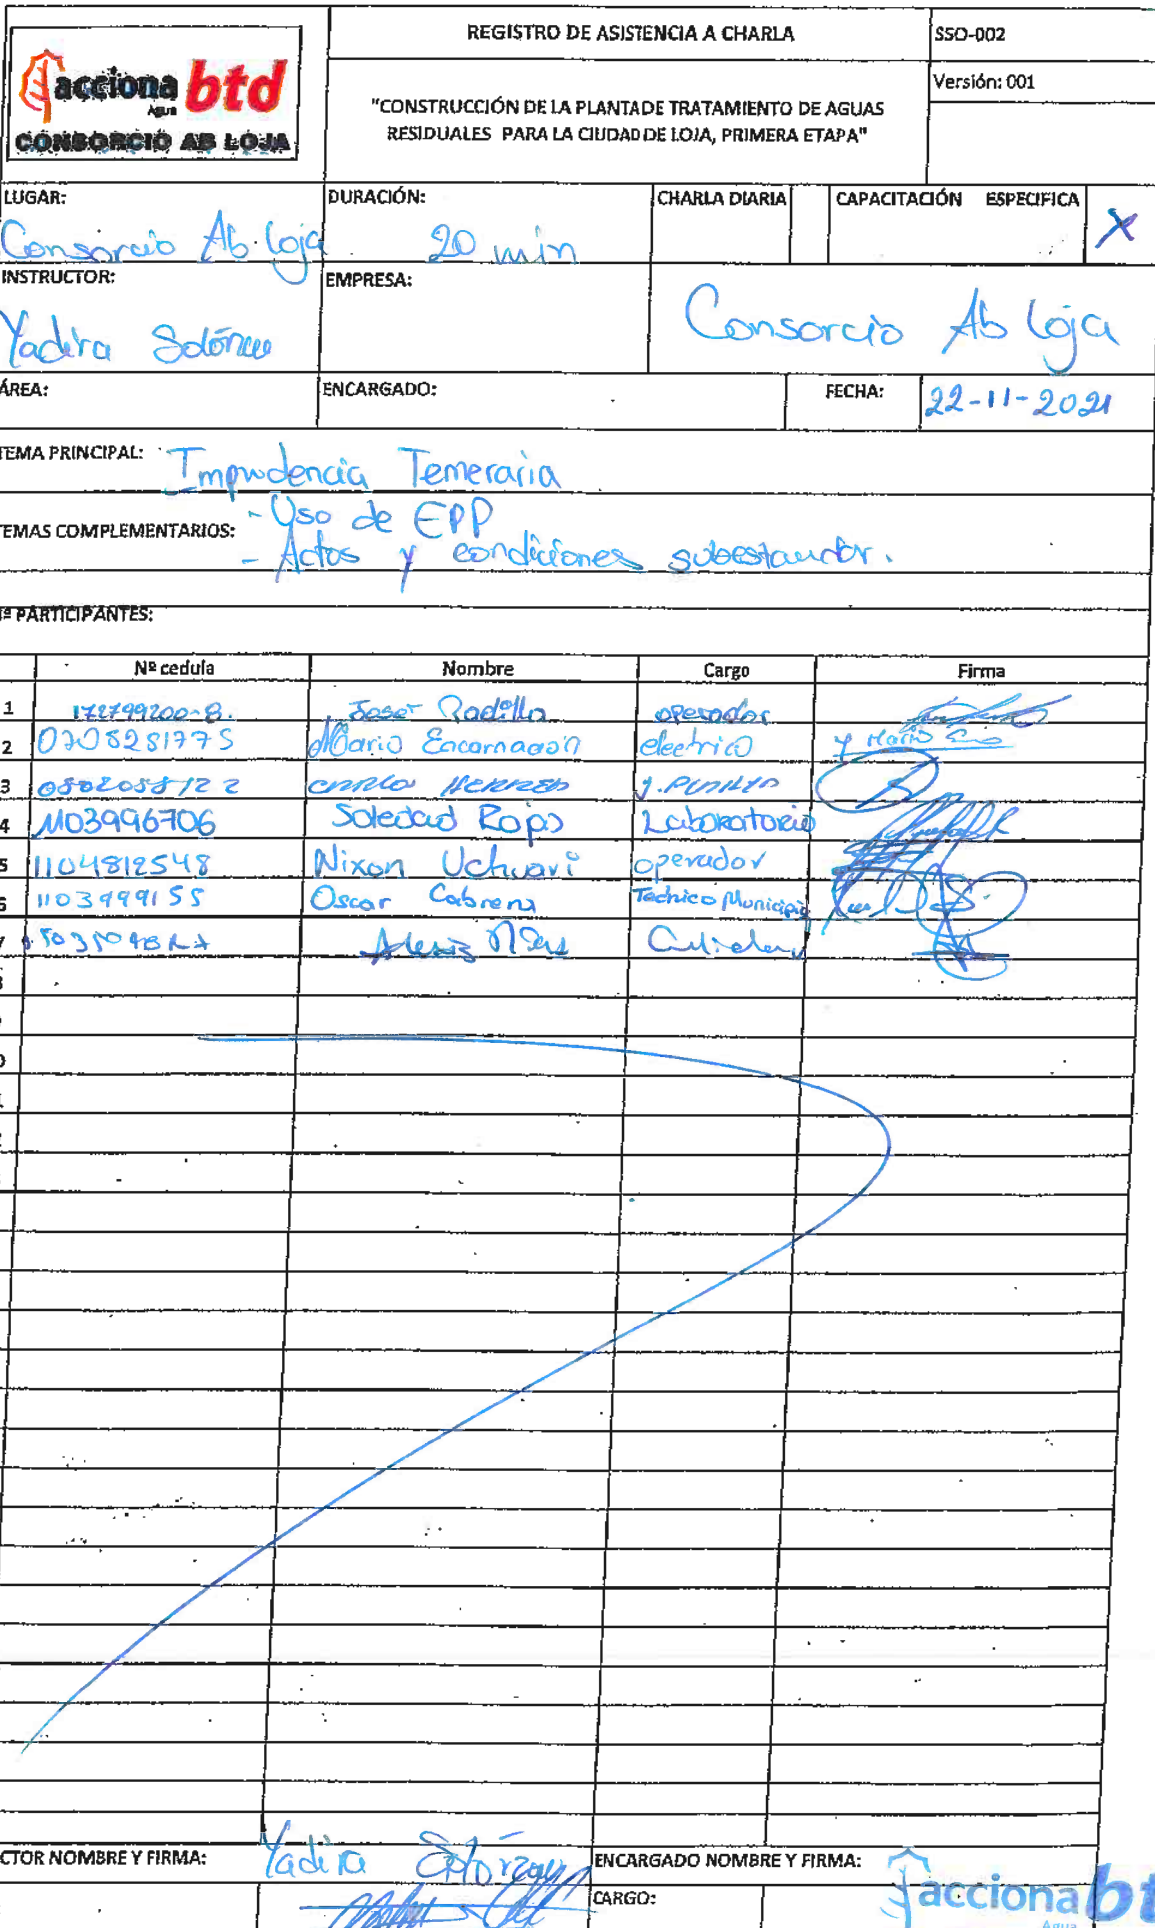 acciona btd
Agua
CONSORCIO AB LOJA
REGISTRO DE ASISTENCIA A CHARLA
SSO-002
Versión: 001
"CONSTRUCCIÓN DE LA PLANTA DE TRATAMIENTO DE AGUAS
RESIDUALES PARA LA CIUDAD DE LOJA, PRIMERA ETAPA"
LUGAR:
Consorcio Ab Loja
DURACIÓN:
20 min
CHARLA DIARIA
CAPACITACIÓN ESPECIFICA
X
INSTRUCTOR:
Yadira
EMPRESA:
Consorcio Ab Loja
ÁREA:
ENCARGADO:
FECHA:
22-11-2021
TEMA PRINCIPAL: Imprudencia Temeraria
TEMAS COMPLEMENTARIOS:
- Uso de EPP
- Actos y condiciones subestandar.
Nº PARTICIPANTES:
Nº cedula Nombre Cargo Firma
1 172799200-8. Padilla operador
2 0708281775 Mario Encarnación electrico
3 0802058122
4 1103996706 Soledad Rojas Laboratorio
5 1104812548 Nixon Uchuari operador
6 1103999155 Oscar Cabrera Tecnico Municipio
7
CTOR NOMBRE Y FIRMA: Yadira
ENCARGADO NOMBRE Y FIRMA:
CARGO:
acciona bt
Agua